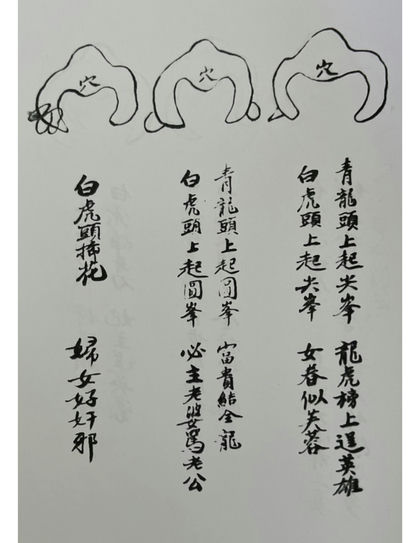 穴
穴
穴
青龍頭上起尖峯 龍虎榜上逞英雄
白虎頭上起尖峯 女眷似芙蓉
青龍頭上起圓峯 富貴結全龍
白虎頭上起圓峯 必主老婆罵老公
白虎頭揷花 婦女好奸邪